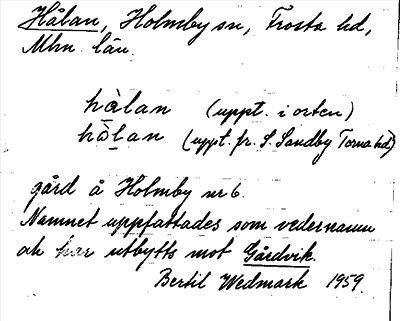 Hålan, Holmby sn, Frosta hd,
Mlm. län.
hàlan (uppt. i orten)
hò̱lan (uppt. fr. S. Sandby Torna hd)
gård å Holmby nr 6.
Namnet uppfattades som vedernamn
och har utbytts mot Gårdvik.
Bertil Wedmark 1959.